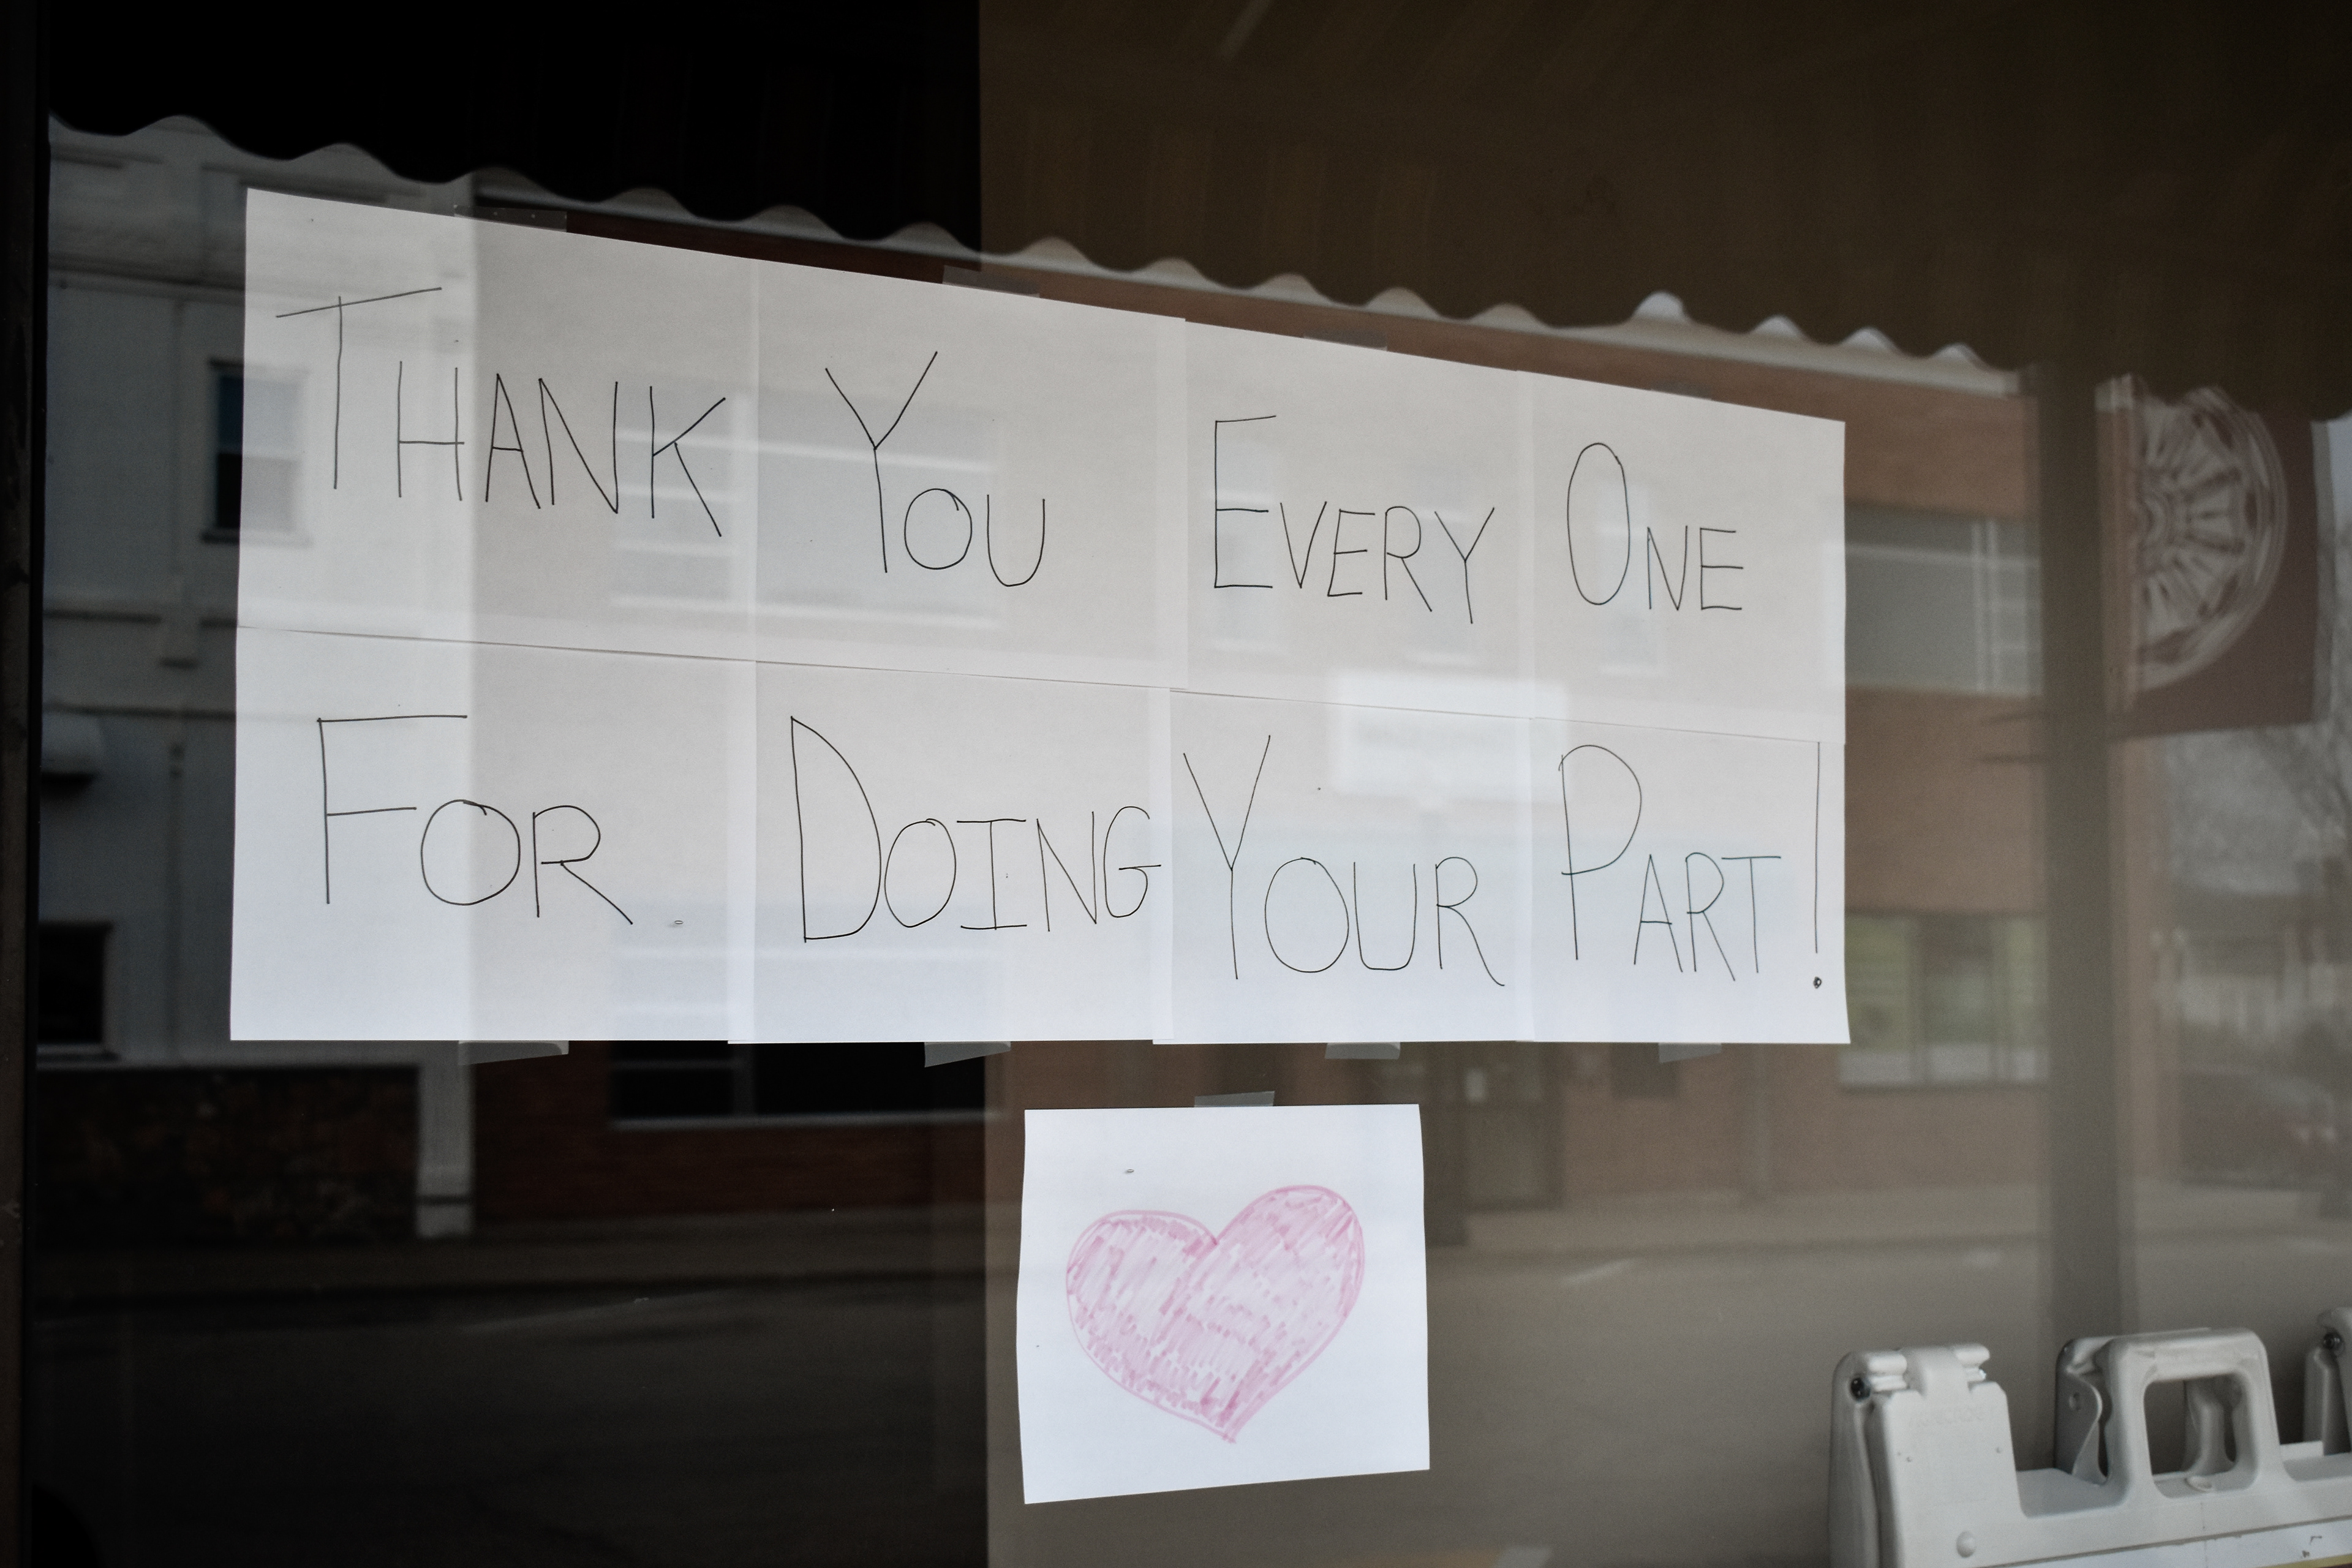 THANK YOU EVERY ONE
FOR DOING YOUR PART!